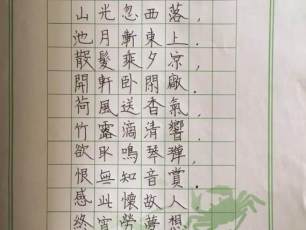 山光忽西落，
池月漸東上．
散髮乘夕涼，
開軒臥閑敞．
荷風送香氣，
竹露滴清響．
欲取鳴琴彈，
恨無知音賞．
感此懷故人，
終宵勞夢想